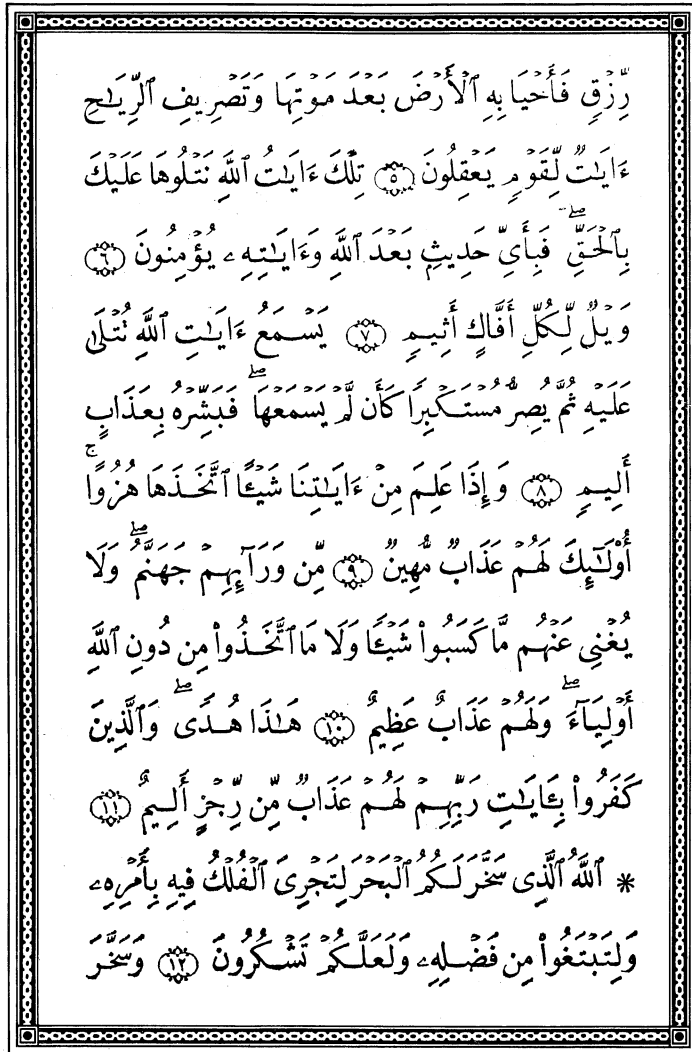 رِّزْقٍ فَأَحْيَا بِهِ ٱلْأَرْضَ بَعْدَ مَوْتِهَا وَتَصْرِيفِ ٱلرِّيَـٰحِ
ءَايَـٰتٌ لِّقَوْمٍ يَعْقِلُونَ ﴿٥﴾ تِلْكَ ءَايَـٰتُ ٱللَّهِ نَتْلُوهَا عَلَيْكَ
بِٱلْحَقِّۖ فَبِأَىِّ حَدِيثٍۭ بَعْدَ ٱللَّهِ وَءَايَـٰتِهِۦ يُؤْمِنُونَ ﴿٦﴾
وَيْلٌ لِّكُلِّ أَفَّاكٍ أَثِيمٍ ﴿٧﴾ يَسْمَعُ ءَايَـٰتِ ٱللَّهِ تُتْلَىٰ
عَلَيْهِ ثُمَّ يُصِرُّ مُسْتَكْبِرًا كَأَن لَّمْ يَسْمَعْهَاۖ فَبَشِّرْهُ بِعَذَابٍ
أَلِيمٍ ﴿٨﴾ وَإِذَا عَلِمَ مِنْ ءَايَـٰتِنَا شَيْـًٔا ٱتَّخَذَهَا هُزُوًاۚ
أُو۟لَـٰٓئِكَ لَهُمْ عَذَابٌ مُّهِينٌ ﴿٩﴾ مِّن وَرَآئِهِمْ جَهَنَّمُۖ وَلَا
يُغْنِى عَنْهُم مَّا كَسَبُوا۟ شَيْـًٔا وَلَا مَا ٱتَّخَذُوا۟ مِن دُونِ ٱللَّهِ
أَوْلِيَآءَۖ وَلَهُمْ عَذَابٌ عَظِيمٌ ﴿١٠﴾ هَـٰذَا هُدًىۖ وَٱلَّذِينَ
كَفَرُوا۟ بِـَٔايَـٰتِ رَبِّهِمْ لَهُمْ عَذَابٌ مِّن رِّجْزٍ أَلِيمٌ ﴿١١﴾
* ٱللَّهُ ٱلَّذِى سَخَّرَ لَكُمُ ٱلْبَحْرَ لِتَجْرِىَ ٱلْفُلْكُ فِيهِ بِأَمْرِهِۦ
وَلِتَبْتَغُوا۟ مِن فَضْلِهِۦ وَلَعَلَّكُمْ تَشْكُرُونَ ﴿١٢﴾ وَسَخَّرَ